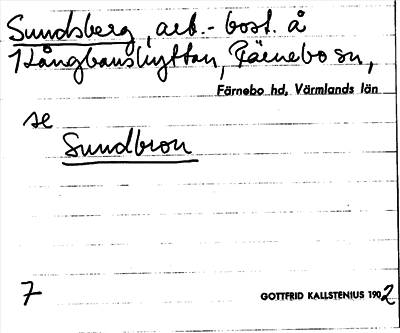 Sundsberg, arb.-bost. å
1 Långbanshyttan, Färnebo sn,
Färnebo hd, Värmlands län
se
Sundbron
7
GOTTFRID KALLSTENIUS 1902